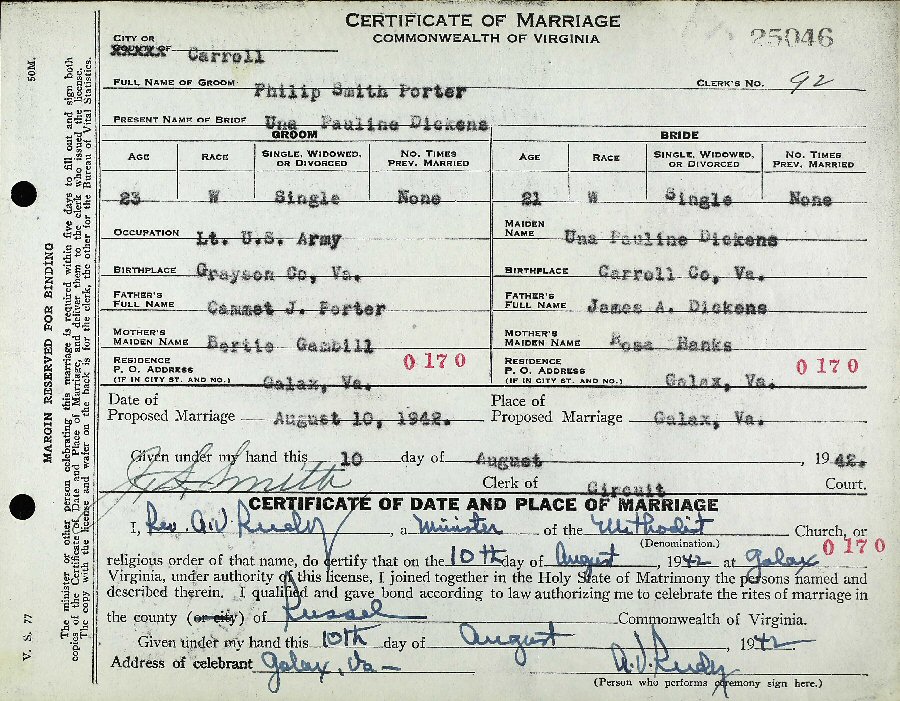 CERTIFICATE OF MARRIAGE
COMMONWEALTH OF VIRGINIA
25046
CITY OR
COUNTY OF Carroll
FULL NAME OF GROOM Philip Smith Porter CLERK'S NO. 92
PRESENT NAME OF BRIDE Una Pauline Dickens
GROOM BRIDE
AGE RACE SINGLE, WIDOWED, OR DIVORCED NO. TIMES PREV. MARRIED AGE RACE SINGLE, WIDOWED, OR DIVORCED NO. TIMES PREV. MARRIED
23 W Single None 21 W Single None
OCCUPATION Lt. U.S. Army MAIDEN NAME Una Pauline Dickens
BIRTHPLACE Grayson Co, Va. BIRTHPLACE Carroll Co, Va.
FATHER'S FULL NAME Cammet J. Porter FATHER'S FULL NAME James A. Dickens
MOTHER'S MAIDEN NAME Bertie Gambill MOTHER'S MAIDEN NAME Rosa Hanks
0 1 7 0 0 1 7 0
RESIDENCE P. O. ADDRESS (IF IN CITY ST. AND NO.) Galax, Va. RESIDENCE P. O. ADDRESS (IF IN CITY ST. AND NO.) Galax, Va.
Date of Proposed Marriage August 10, 1942. Place of Proposed Marriage Galax, Va.
Given under my hand this 10 day of August, 1942.
Smith Clerk of Circuit Court.
CERTIFICATE OF DATE AND PLACE OF MARRIAGE
I, Rev. A.V. Rudy, a Minister of the Methodist Church, or
(Denomination.)
0 1 7 0
religious order of that name, do certify that on the 10th day of August, 1942 at Galax
Virginia, under authority of this license, I joined together in the Holy State of Matrimony the persons named and
described therein. I qualified and gave bond according to law authorizing me to celebrate the rites of marriage in
the county (or city) of Russel Commonwealth of Virginia.
Given under my hand this 10th day of August, 1942
Address of celebrant Galax, Va – A.V. Rudy
(Person who performs ceremony sign here.)
V. S. 77 50M.
MARGIN RESERVED FOR BINDING
The minister or other person celebrating this marriage is required within five days to fill out and sign both
copies of the Certificate of Date and Place of Marriage, and deliver them to the clerk who issued the license.
The copy with the license and wafer on the back is for the clerk, the other for the Bureau of Vital Statistics.